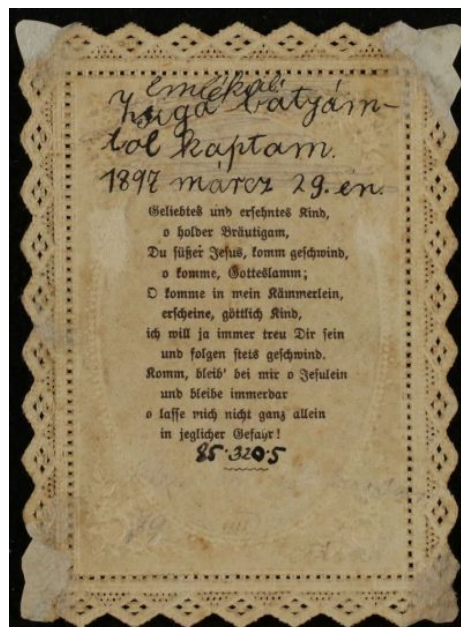 emlékül
Zsiga bátyám-
tól kaptam.
1897 márcz 29.-én.
Geliebtes und ersehntes Kind,
o holder Bräutigam,
Du süßer Jesus, komm geschwind,
o komme, Gotteslamm;
O komme in mein Kämmerlein,
erscheine, göttlich Kind,
ich will ja immer treu Dir sein
und folgen stets geschwind.
Komm, bleib' bei mir o Jesulein
und bleibe immerdar
o lasse mich nicht ganz allein
in jeglicher Gefahr!
85.320.5